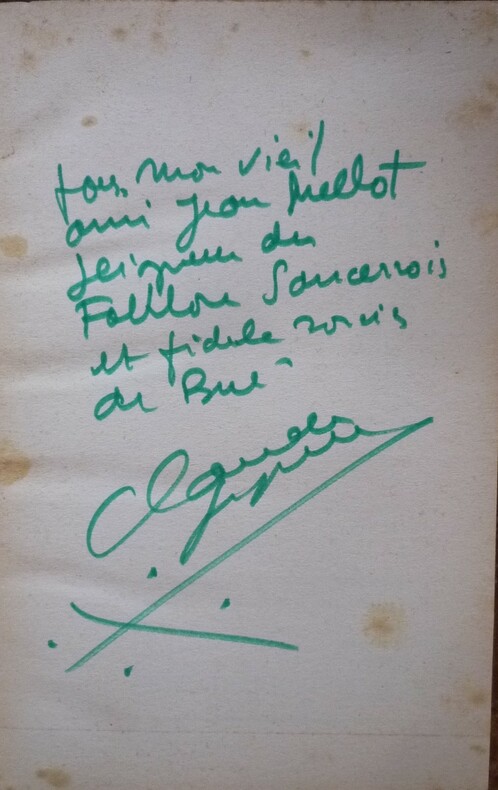 pour mon vieil
ami Jean Mellot
seigneur du
Folklore Sancerrois
et fidèle
de Bué
Claude